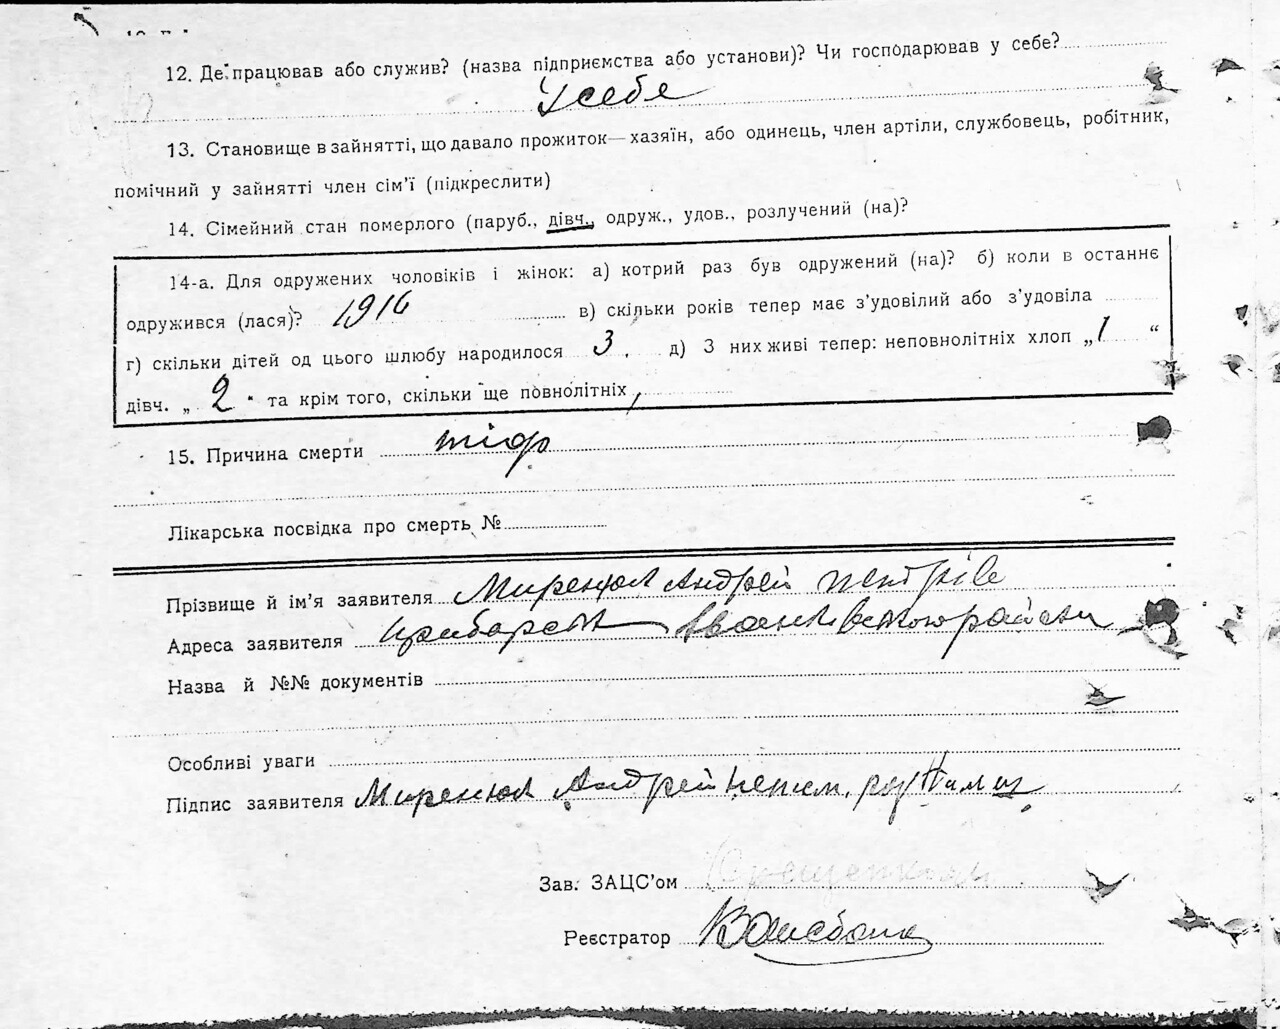 12. Де працював або служив? (назва підприємства або установи)? Чи господарював у себе?
У себе
13. Становище в зайнятті, що давало прожиток—хазяїн, або одинець, член артіли, службовець, робітник,
помічний у зайнятті член сім'ї (підкреслити)
14. Сімейний стан померлого (паруб., дівч., одруж., удов., розлучений (на)?
14-а. Для одружених чоловіків і жінок: а) котрий раз був одружений (на)? б) коли в останнє
одружився (лася)? 1916 в) скільки років тепер має з'удовілий або з'удовіла
г) скільки дітей од цього шлюбу народилося 3, д) З них живі тепер: неповнолітніх хлоп „1 “
дівч. „ 2 “ та крім того, скільки ще повнолітніх
15. Причина смерти тіф
Лікарська посвідка про смерть №
Прізвище й ім'я заявителя Миренюк Андрей
Адреса заявителя района
Назва й №№ документів
Особливі уваги
Підпис заявителя Миренюк Андрей
Зав. ЗАЦС'ом
Реєстратор